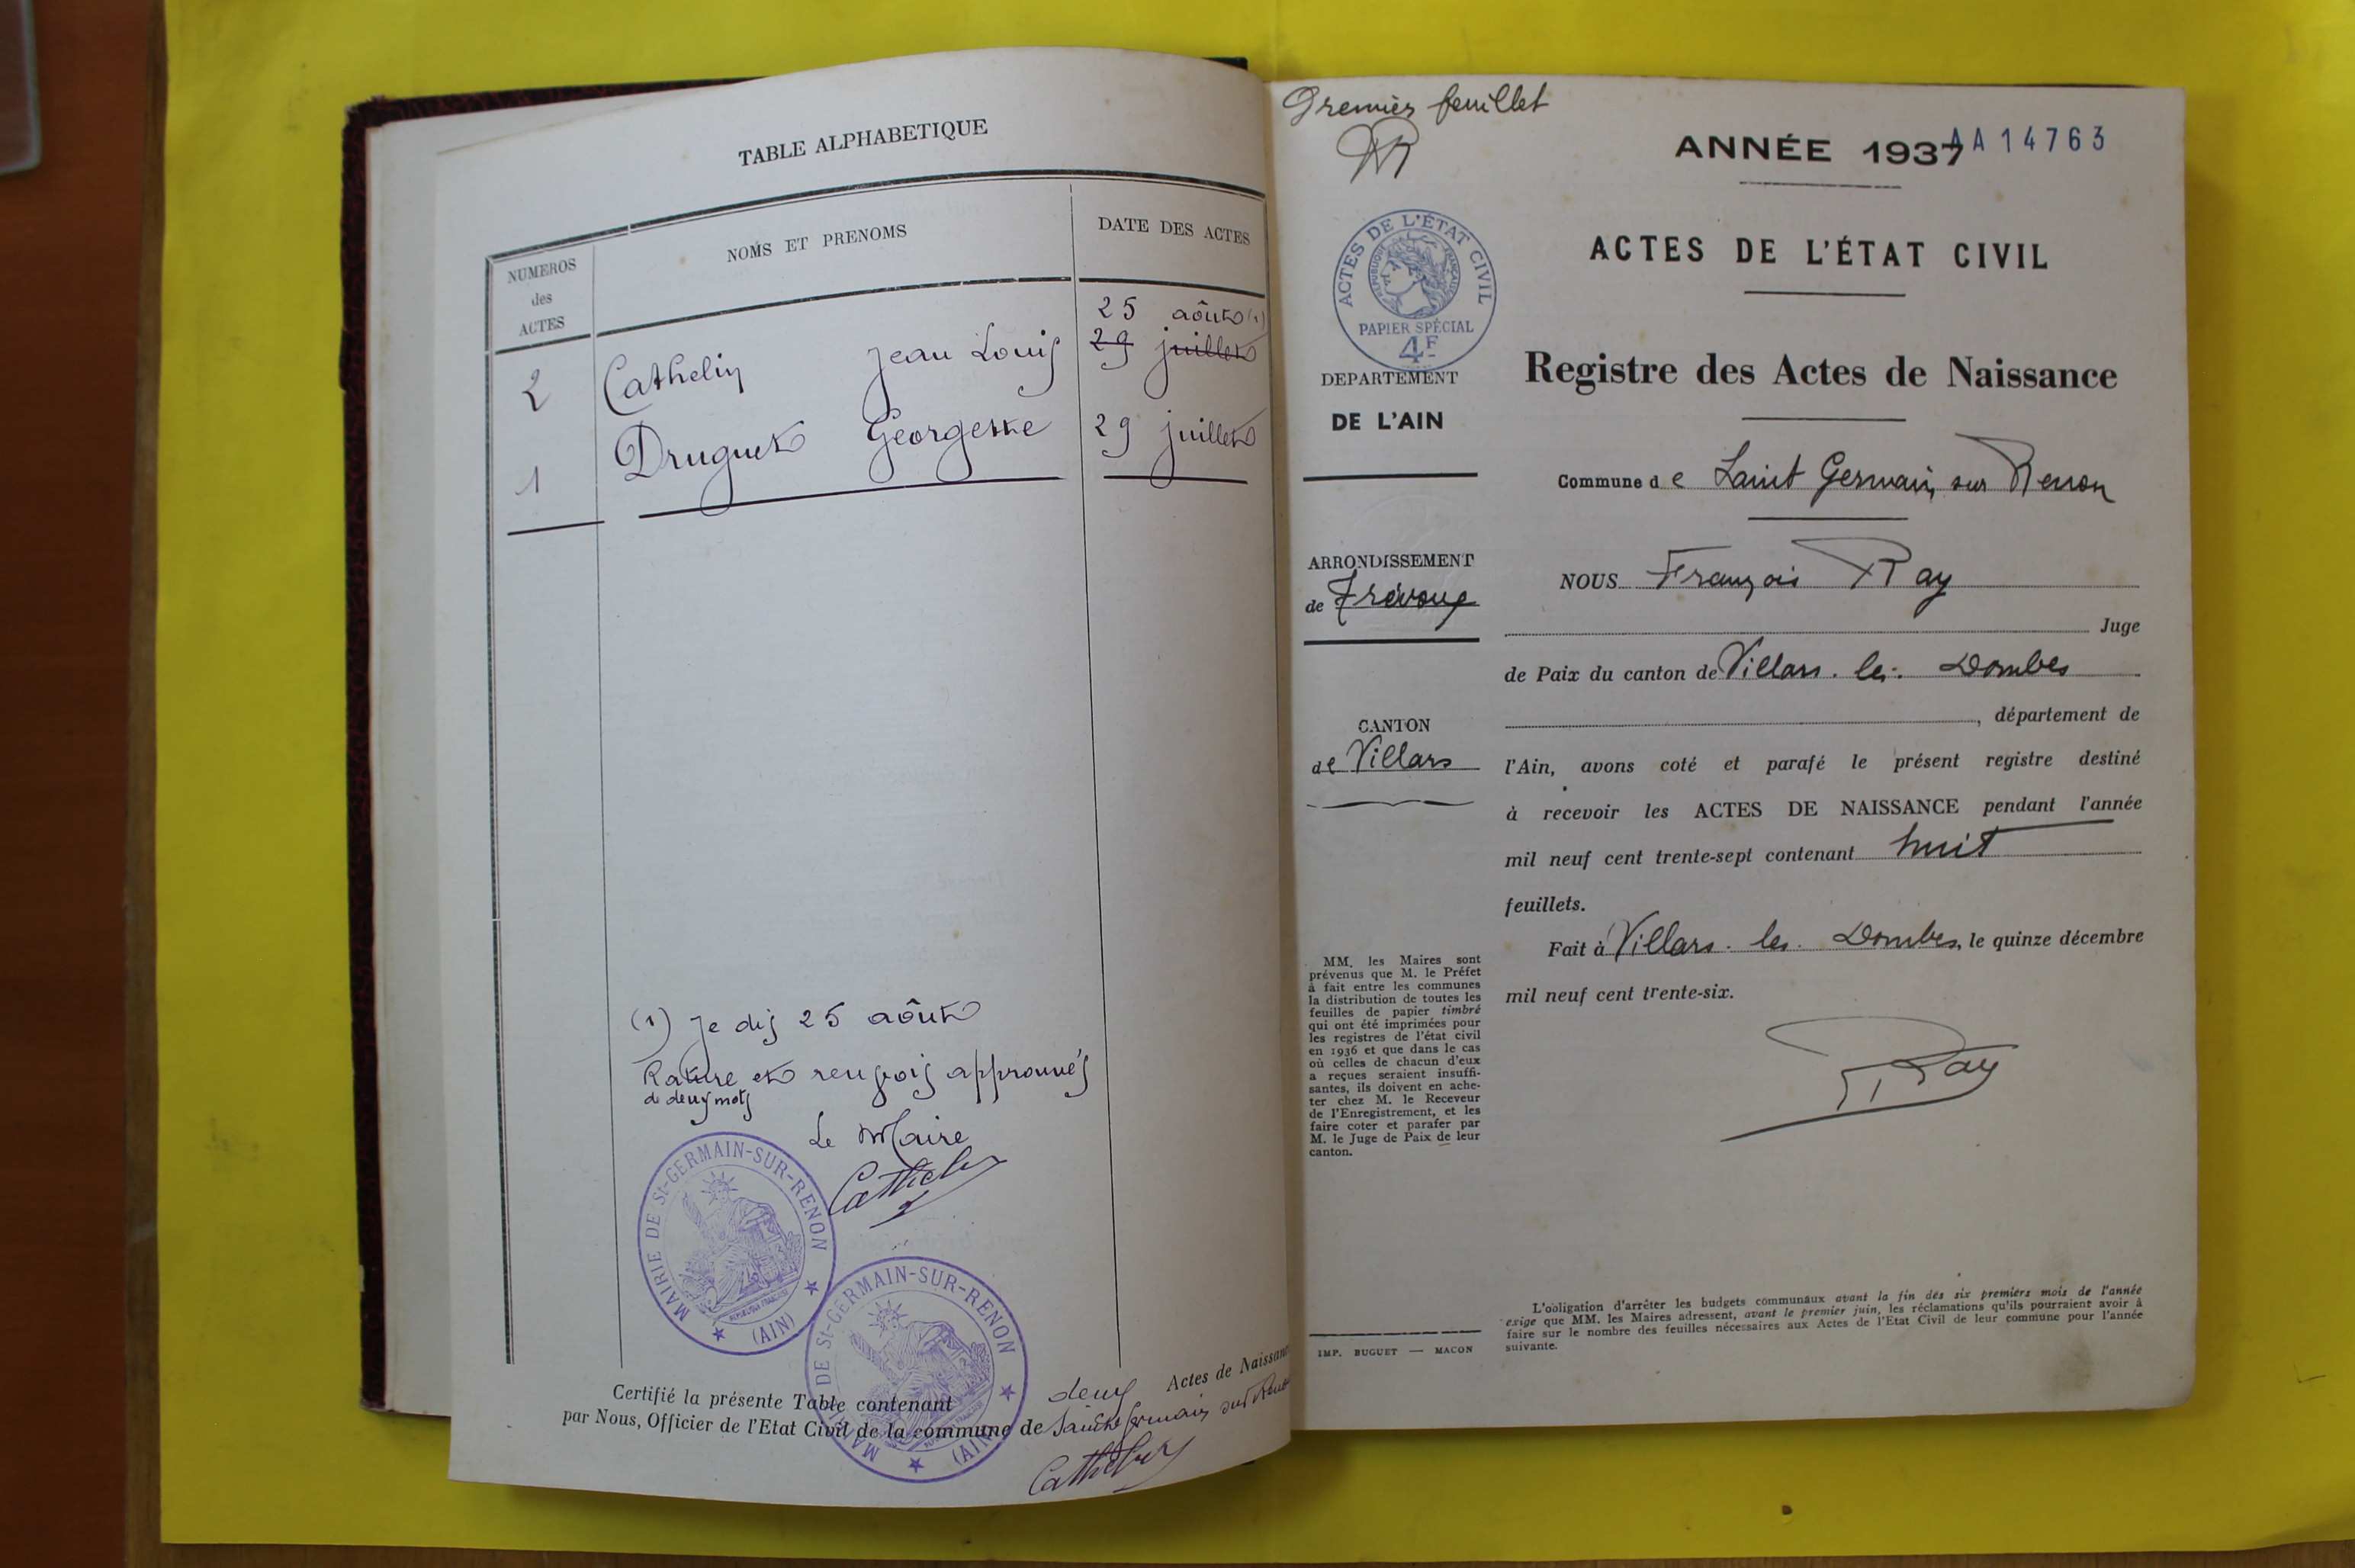 TABLE ALPHABETIQUE
NUMEROS des ACTES
NOMS ET PRENOMS
DATE DES ACTES
25 août (1)
2 Cathelin Jean Louis 29 juillet
1 Druguet Georgette 29 juillet
(1) Je dis 25 août
Rature et renvois approuvés
de deux mots
Le Maire
Cathelin
MAIRIE DE St-GERMAIN-SUR-RENON
(AIN)
MAIRIE DE St-GERMAIN-SUR-RENON
(AIN)
Certifié la présente Table contenant deux Actes de Naissance
par Nous, Officier de l'Etat Civil de la commune de Saint Germain sur Renon
Cathelin
Premier feuillet
ANNÉE 1937
AA 14763
ACTES DE L'ÉTAT CIVIL
REPUBLIQUE FRANÇAISE
PAPIER SPÉCIAL
4F
DEPARTEMENT
DE L'AIN
ARRONDISSEMENT
de Trévoux
CANTON
de Villars
MM. les Maires sont
prévenus que M. le Préfet
à fait entre les communes
la distribution de toutes les
feuilles de papier timbré
qui ont été imprimées pour
les registres de l'état civil
en 1936 et que dans le cas
où celles de chacun d'eux
a reçues seraient insuffi-
santes, ils doivent en ache-
ter chez M. le Receveur
de l'Enregistrement, et les
faire coter et parafer par
M. le Juge de Paix de leur
canton.
IMP. BUGUET — MACON
ACTES DE L'ÉTAT CIVIL
Registre des Actes de Naissance
Commune de Saint Germain sur Renon
NOUS François Ray
Juge
de Paix du canton de Villars. les. Dombes
, département de
l'Ain, avons coté et parafé le présent registre destiné
à recevoir les ACTES DE NAISSANCE pendant l'année
mil neuf cent trente-sept contenant huit
feuillets.
Fait à Villars. les. Dombes, le quinze décembre
mil neuf cent trente-six.
Ray
L'obligation d'arrêter les budgets communaux avant la fin des six premiers mois de l'année
exige que MM. les Maires adressent, avant le premier juin, les réclamations qu'ils pourraient avoir à
faire sur le nombre des feuilles nécessaires aux Actes de l'Etat Civil de leur commune pour l'année
suivante.